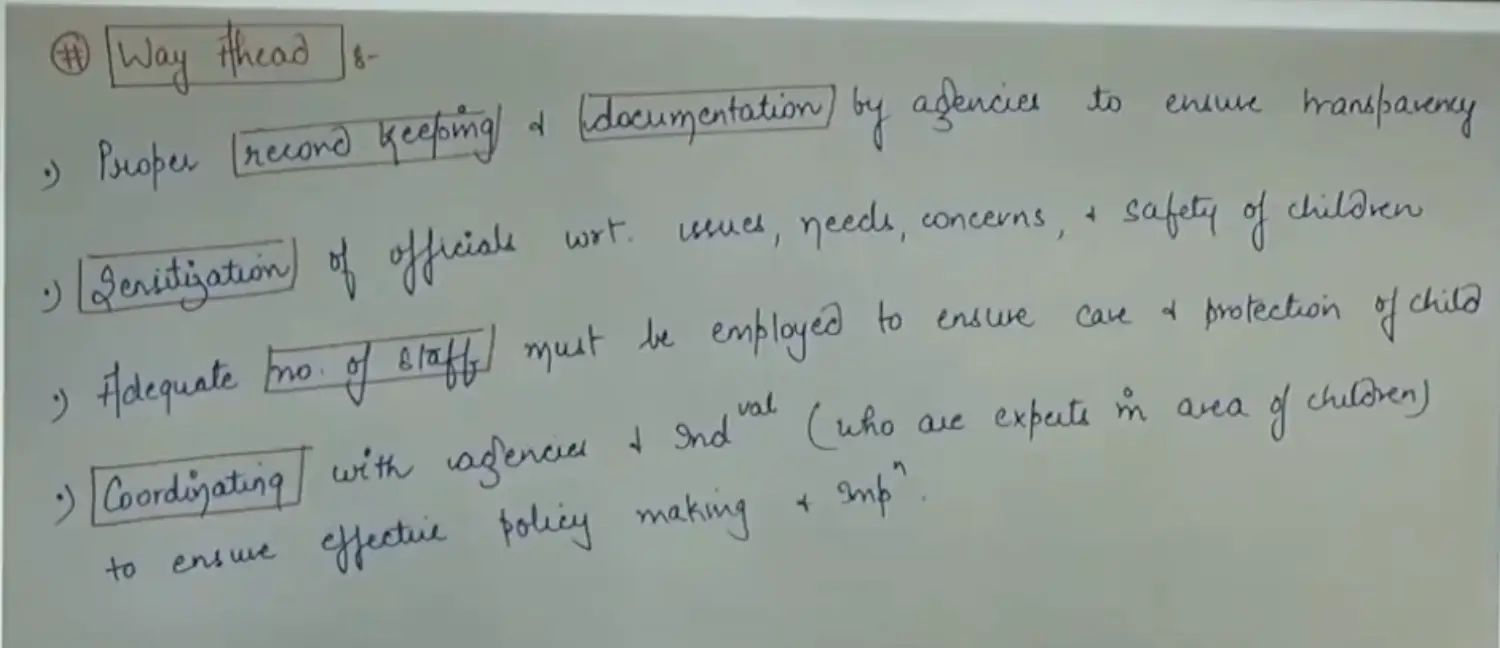 # Way Ahead :-
•) Proper record keeping & documentation by agencies to ensure transparency
•) Sensitization of officials wrt. issues, needs, concerns, & safety of children
•) Adequate no. of staff must be employed to ensure care & protection of child
•) Coordinating with agencies & Ind^val (who are experts in area of children)
to ensure effective policy making & Imp^n.